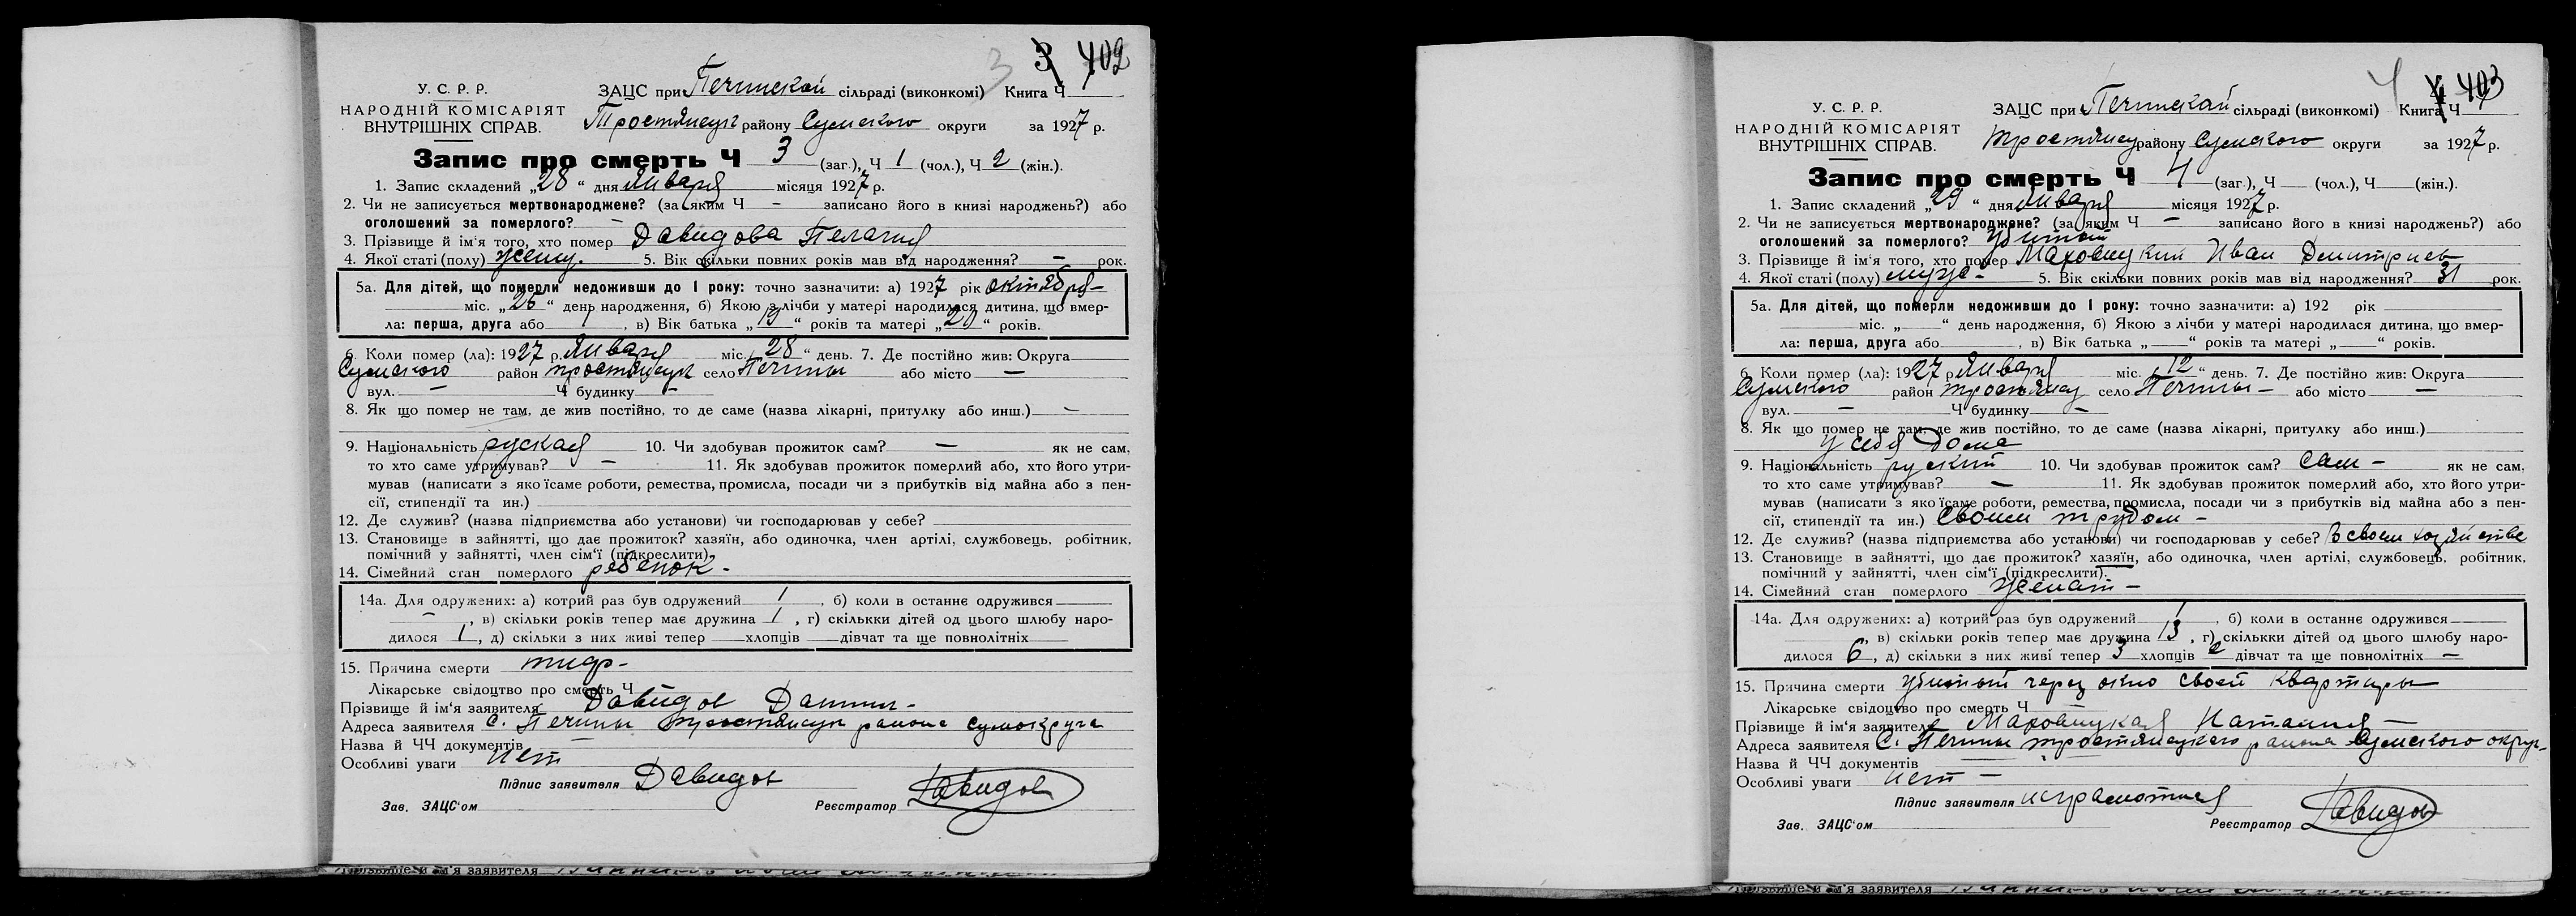 3 3 402
У. С. Р. Р.
НАРОДНІЙ КОМІСАРІЯТ
ВНУТРІШНІХ СПРАВ.
ЗАЦС при Печинской сільраді (виконкомі) Книга Ч
Тростянецк району Сумского округи за 1927 р.
Запис про смерть Ч 3 (заг.), Ч 1 (чол.), Ч 2 (жін.).
1. Запис складений „28“ дня Января місяця 1927 р.
2. Чи не записується мертвонароджене? (за яким Ч — записано його в книзі народжень?) або
оголошений за померлого? —
3. Прізвище й ім‘я того, хто помер Давидова Пелагия
4. Якої статі (полу) женщ. 5. Вік скільки повних років мав від народження? — рок.
5а. Для дітей, що померли недоживши до 1 року: точно зазначити: а) 1927 рік октября
міс. „26“ день народження, б) Якою з лічби у матері народилася дитина, що вмер-
ла: перша, друга або 1, в) Вік батька „19“ років та матері „20“ років.
6. Коли помер (ла): 1927 р. Января міс. „28“ день. 7. Де постійно жив: Округа
Сумского район тростянецк село Печины або місто —
вул. — Ч будинку —
8. Як що помер не там, де жив постійно, то де саме (назва лікарні, притулку або инш.) —
9. Національність руская 10. Чи здобував прожиток сам? — як не сам,
то хто саме утримував? — 11. Як здобував прожиток померлий або, хто його утри-
мував (написати з якоїсаме роботи, ремества, промисла, посади чи з прибутків від майна або з пен-
сії, стипендії та ин.)
12. Де служив? (назва підприємства або установи) чи господарював у себе?
13. Становище в зайнятті, що дає прожиток? хазяїн, або одиночка, член артілі, службовець, робітник,
помічний у зайнятті, член сім‘ї (підкреслити).
14. Сімейний стан померлого ребенок —
14а. Для одружених: а) котрий раз був одружений 1, б) коли в останнє одружився
—, в) скільки років тепер має дружина 1, г) скількки дітей од цього шлюбу наро-
дилося 1, д) скільки з них живі тепер хлопців дівчат та ще повнолітніх
15. Причина смерти тиф —
Лікарське свідоцтво про смерть Ч
Прізвище й ім‘я заявителя Давидов Данил —
Адреса заявителя С. Печины тростянецк района Сумокруга
Назва й ЧЧ документів
Особливі уваги нет
Підпис заявителя Давидов
Зав. ЗАЦС‘ом Реєстратор Давидов
4 4 403
У. С. Р. Р.
НАРОДНІЙ КОМІСАРІЯТ
ВНУТРІШНІХ СПРАВ.
ЗАЦС при Печинской сільраді (виконкомі) Книга Ч
тростянец району Сумского округи за 1927 р.
Запис про смерть Ч 4 (заг.), Ч (чол.), Ч (жін.).
1. Запис складений „29“ дня Января місяця 1927 р.
2. Чи не записується мертвонароджене? (за яким Ч — записано його в книзі народжень?) або
оголошений за померлого? Убитый
3. Прізвище й ім‘я того, хто помер Маховицкий Иван Дмитриев
4. Якої статі (полу) мужс — 5. Вік скільки повних років мав від народження? 31 рок.
5а. Для дітей, що померли недоживши до 1 року: точно зазначити: а) 192 рік
міс. „ “ день народження, б) Якою з лічби у матері народилася дитина, що вмер-
ла: перша, друга або , в) Вік батька „ “ років та матері „ “ років.
6. Коли помер (ла): 1927 р. Января міс. „12“ день. 7. Де постійно жив: Округа
Сумского район тростянец село Печины — або місто —
вул. — Ч будинку —
8. Як що помер не там, де жив постійно, то де саме (назва лікарні, притулку або инш.)
У себя дома
9. Національність руский 10. Чи здобував прожиток сам? Сам — як не сам,
то хто саме утримував? — 11. Як здобував прожиток померлий або, хто його утри-
мував (написати з якоїсаме роботи, ремества, промисла, посади чи з прибутків від майна або з пен-
сії, стипендії та ин.) Своим трудом —
12. Де служив? (назва підприємства або установи) чи господарював у себе? В своем хозяйстве
13. Становище в зайнятті, що дає прожиток? хазяїн, або одиночка, член артілі, службовець, робітник,
помічний у зайнятті, член сім‘ї (підкреслити).
14. Сімейний стан померлого женат —
14а. Для одружених: а) котрий раз був одружений 1, б) коли в останнє одружився
, в) скільки років тепер має дружина 13, г) скількки дітей од цього шлюбу наро-
дилося 6, д) скільки з них живі тепер 3 хлопців 2 дівчат та ще повнолітніх —
15. Причина смерти Убитый через окно своей квартиры
Лікарське свідоцтво про смерть Ч
Прізвище й ім‘я заявителя Маховицкая Наталия —
Адреса заявителя С. Печины тростянецкого района Сумского округ
Назва й ЧЧ документів
Особливі уваги нет —
Підпис заявителя неграмотная
Зав. ЗАЦС‘ом Реєстратор Давидов